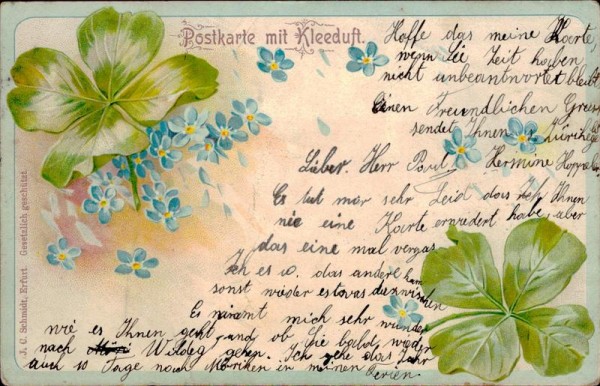 Postkarte mit Kleeduft.
Hoffe das meine Karte,
wenn Sie Zeit haben,
nicht unbeantwortet bleibt
Einen Freundlichen Gruss
sendet Ihnen
Hermine
Lieber Herr Paul
Es tut mir sehr Leid das ich Ihnen
nie eine Karte erwiedert habe, aber
das eine mal vergas
Ich es u. das andere kam
sonst wieder etwas dazwischen
Es nimmt mich sehr wunder
wie es Ihnen geht und ob Sie bald wieder
nach gehen. Ich gehe das Jahr
auch 10 Tage nach in meinen
Ferien.
J. C. Schmidt, Erfurt. Gesetzlich geschützt.